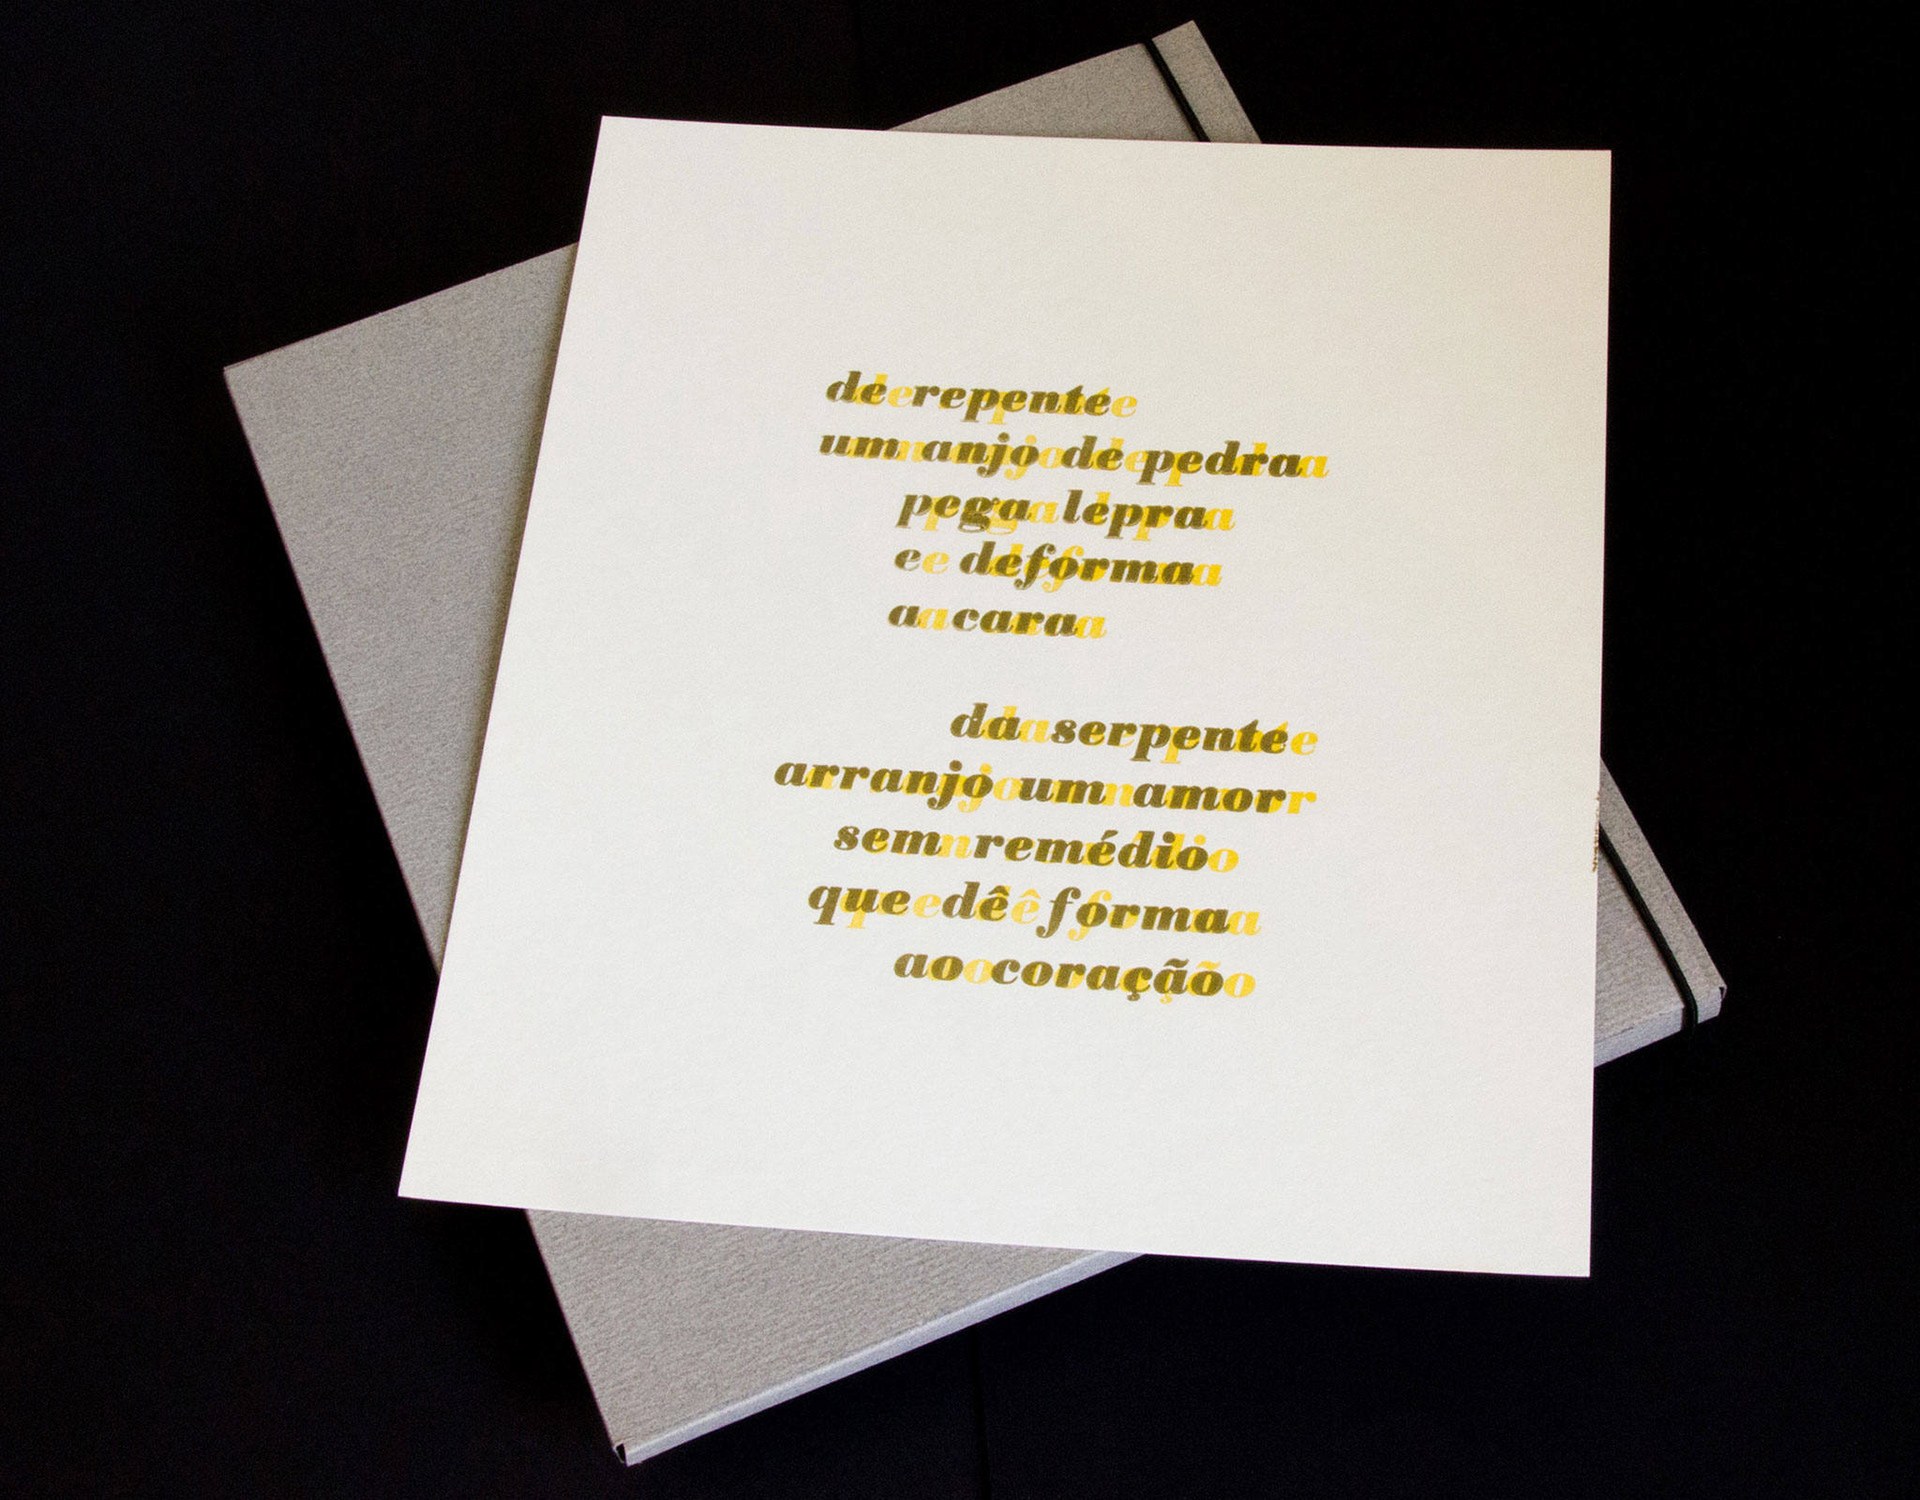 de repente
um anjo de pedra
pega lepra
e deforma
a cara
da serpente
arranjo um amor
sem remédio
que dê forma
ao coração